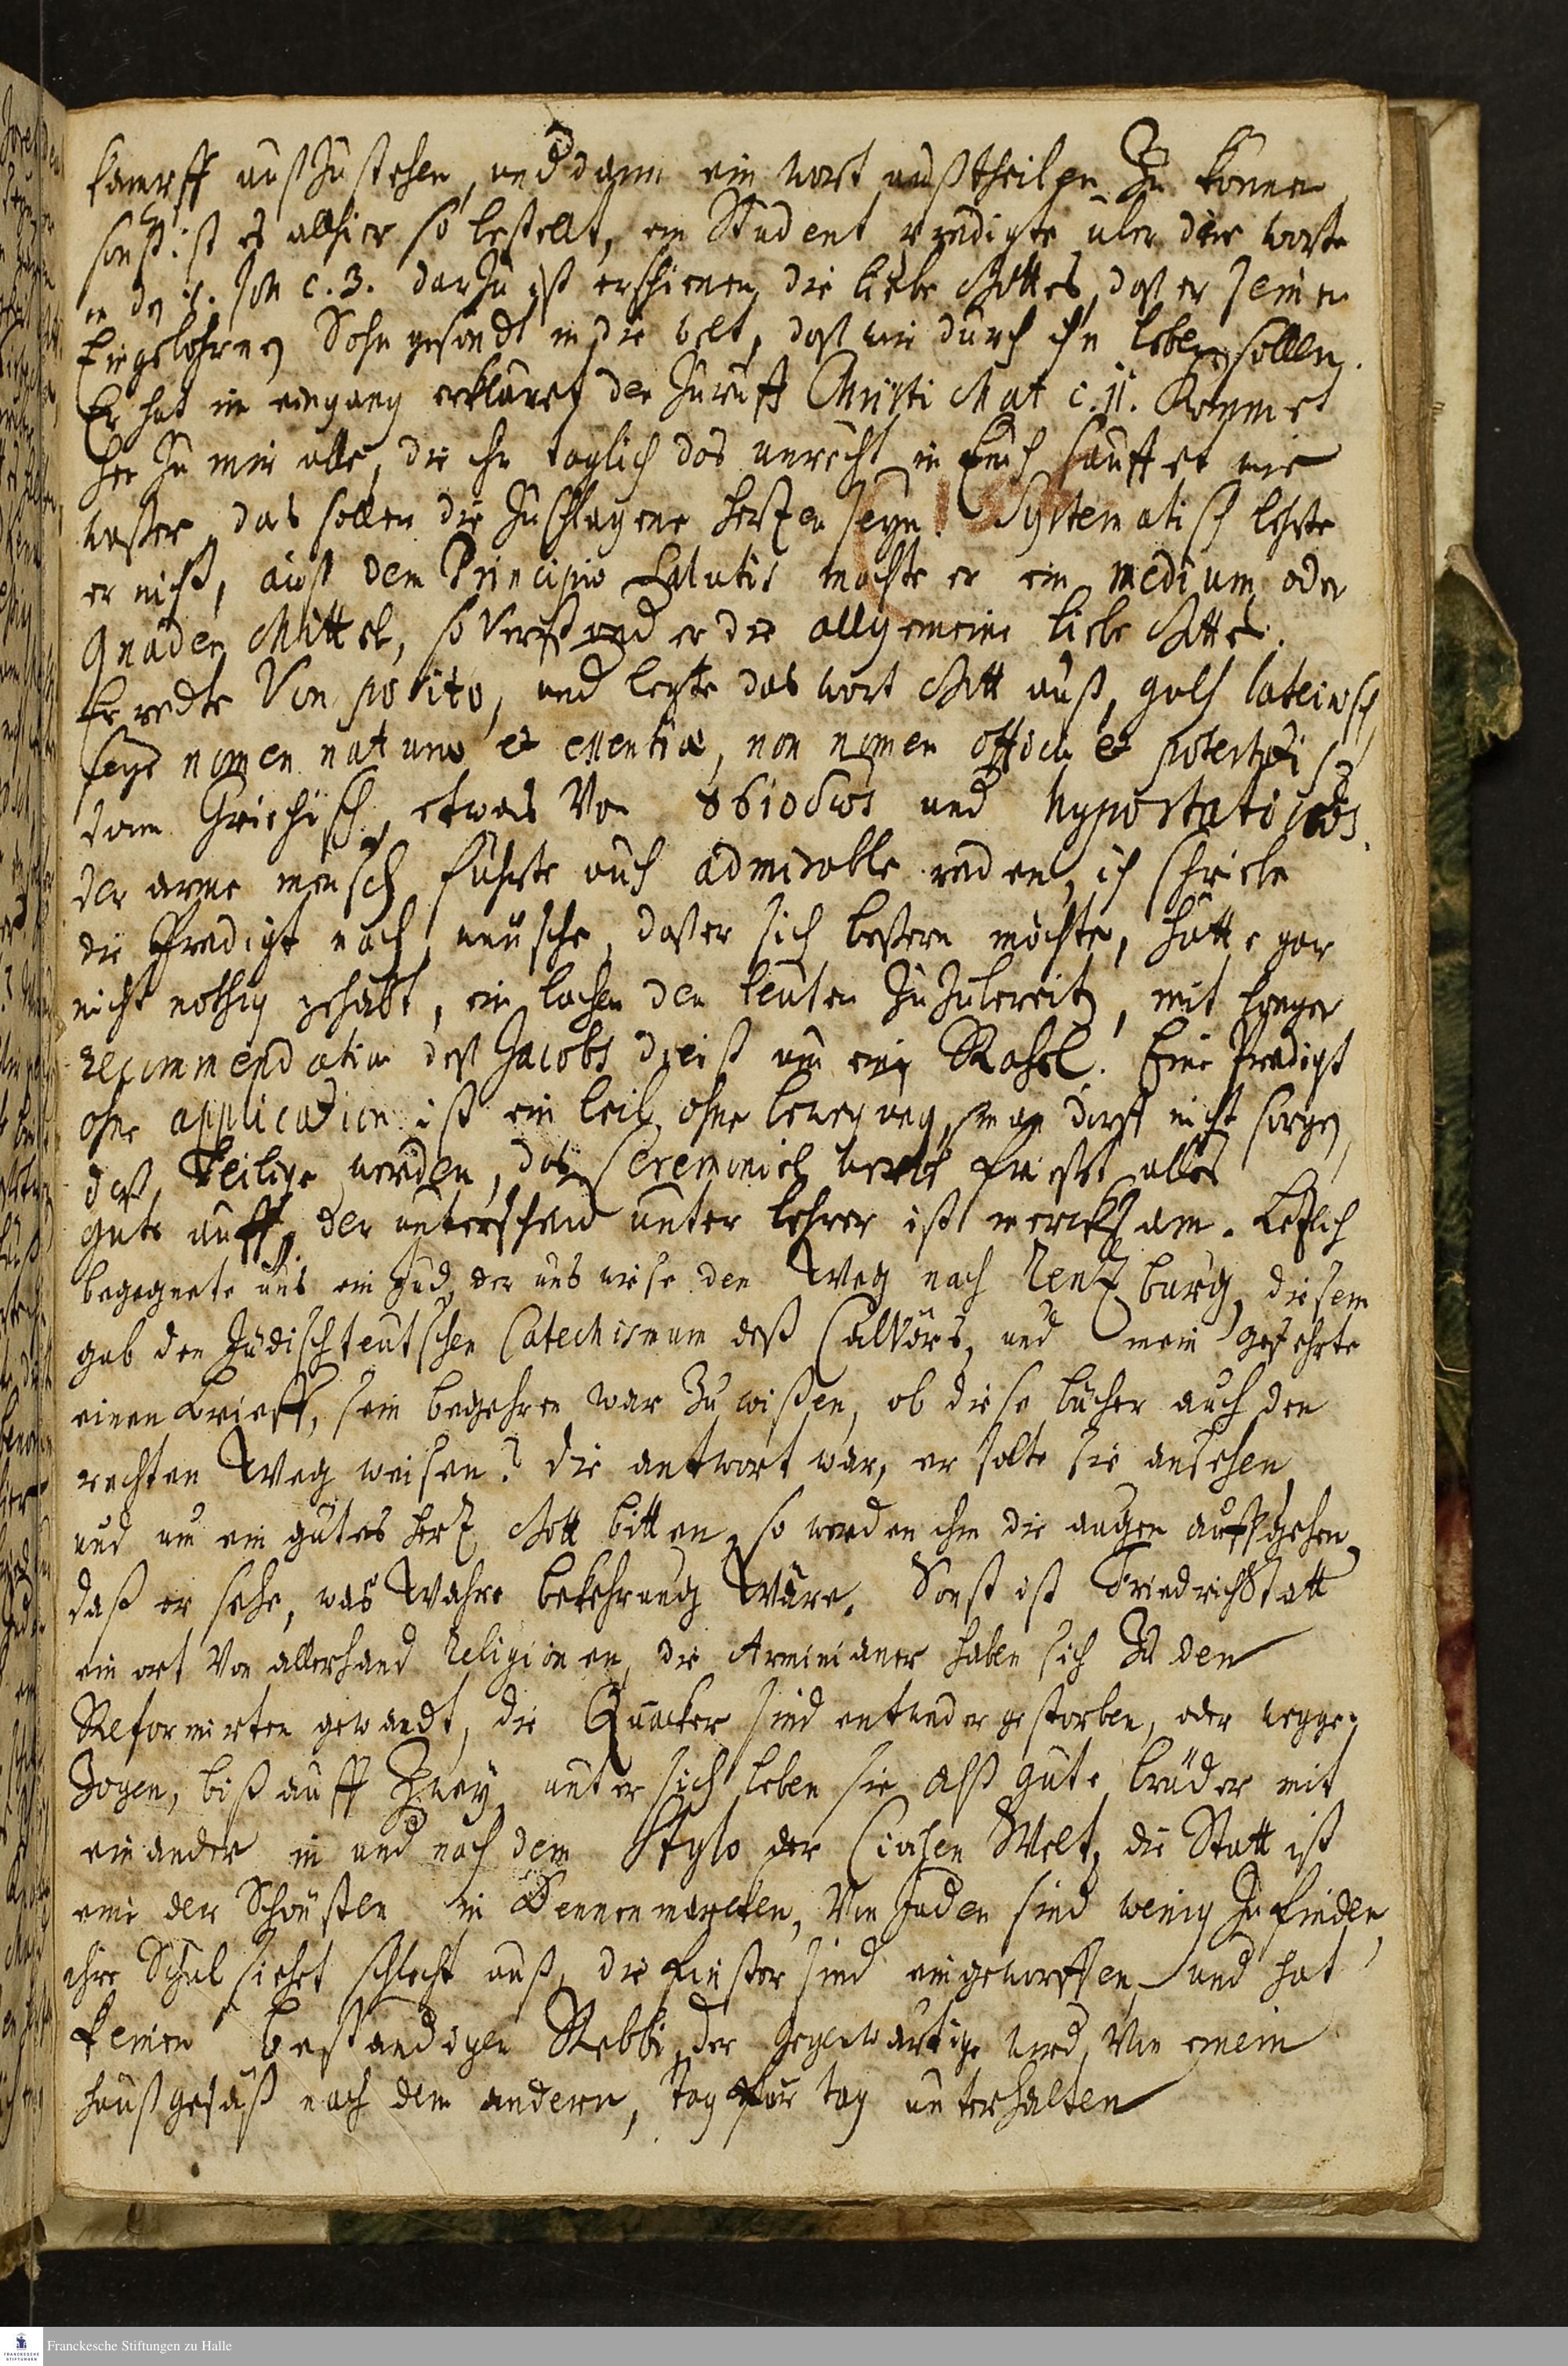 kampff außzustehen, und dann ein wort außtheilen zu können
sonst ist es allhier so bestellt, ein Student predigte über die worte
in der 1. Joh c. 3. darzu ist erschienen die liebe Gottes, daß er seinen
Eingebohrnen Sohn gesandt in die welt, daß wir durch ihn leben sollen.
Er hat im eingang erkläret den Zuruff Christi Mat c. 11. Kommet
her zu mir alle, die ihr täglich das unrecht in Euch sauffet wie
waßer, das sollen die zuschlagene hertzen seyn. Systematisch lehrte
er nicht, auß dem Principio Salutis machte er ein medium oder
Gnaden Mittel, so verstand er die allgemeine liebe Gottes.
Er redte von posito, und legte das wort Gott auß, halb lateinsch
seye nomen naturæ et essentiæ, non nomen officii et potestatis
dann Griechisch, etwas von und hypostaticos.
der arme mensch führte auch admirable reden, ich schriebe
die Predigt nach, wünsche, daß er sich beßern möchte, hätte gar
nicht nöthig gehabt, ein lachen den leuten zuzubereiten, mit langer
recommendation deß Jacobs dienst um eine Rahel. Eine Predigt
ohne application ist ein leib ohne bewegung, man darff nicht sorgen
daß heilige werden, das Ceremoniel werck frießt alles
guts auff, der unterscheid unter lehrer ist mercksam. Letzlich
begegnete uns ein Jud, der uns wiese den Weg nach Rentzburg, diesem
gab den Jüdischteutschen Catechismum deß Calvörs, und mein gefehrte
einen Brieff, sein begehren war zu wißen, ob diese bücher auch den
rechten Weg weisen? die antwort war, er solte sie ansehen
und um ein gutes hertz Gott bitten, so werden ihm die augen auffgehen,
daß er sehe, was Wahre bekehrung Wäre. Sonst ist Friedrichstatt
ein ort von allerhand Religionen, die Arminianer haben sich zu den
Reformirten gewandt, die Quacker sind entweder gestorben, oder wegge-
zogen, biß auff zwey, unter sich leben sie alß gute brüder mit
einander in und nach dem Stylo der Welt, die Statt ist
eine der Schönsten in Dennenmarcken, von Juden sind wenig zu finden
ihre Schul siehet schlecht auß, die finster sind eingeworffen, und hat
keinen beständigen Rebbi, der gegenwärtige wird von einem
haußgesäß nach dem andern, tag für tag unterhalten
Franckesche Stiftungen zu Halle